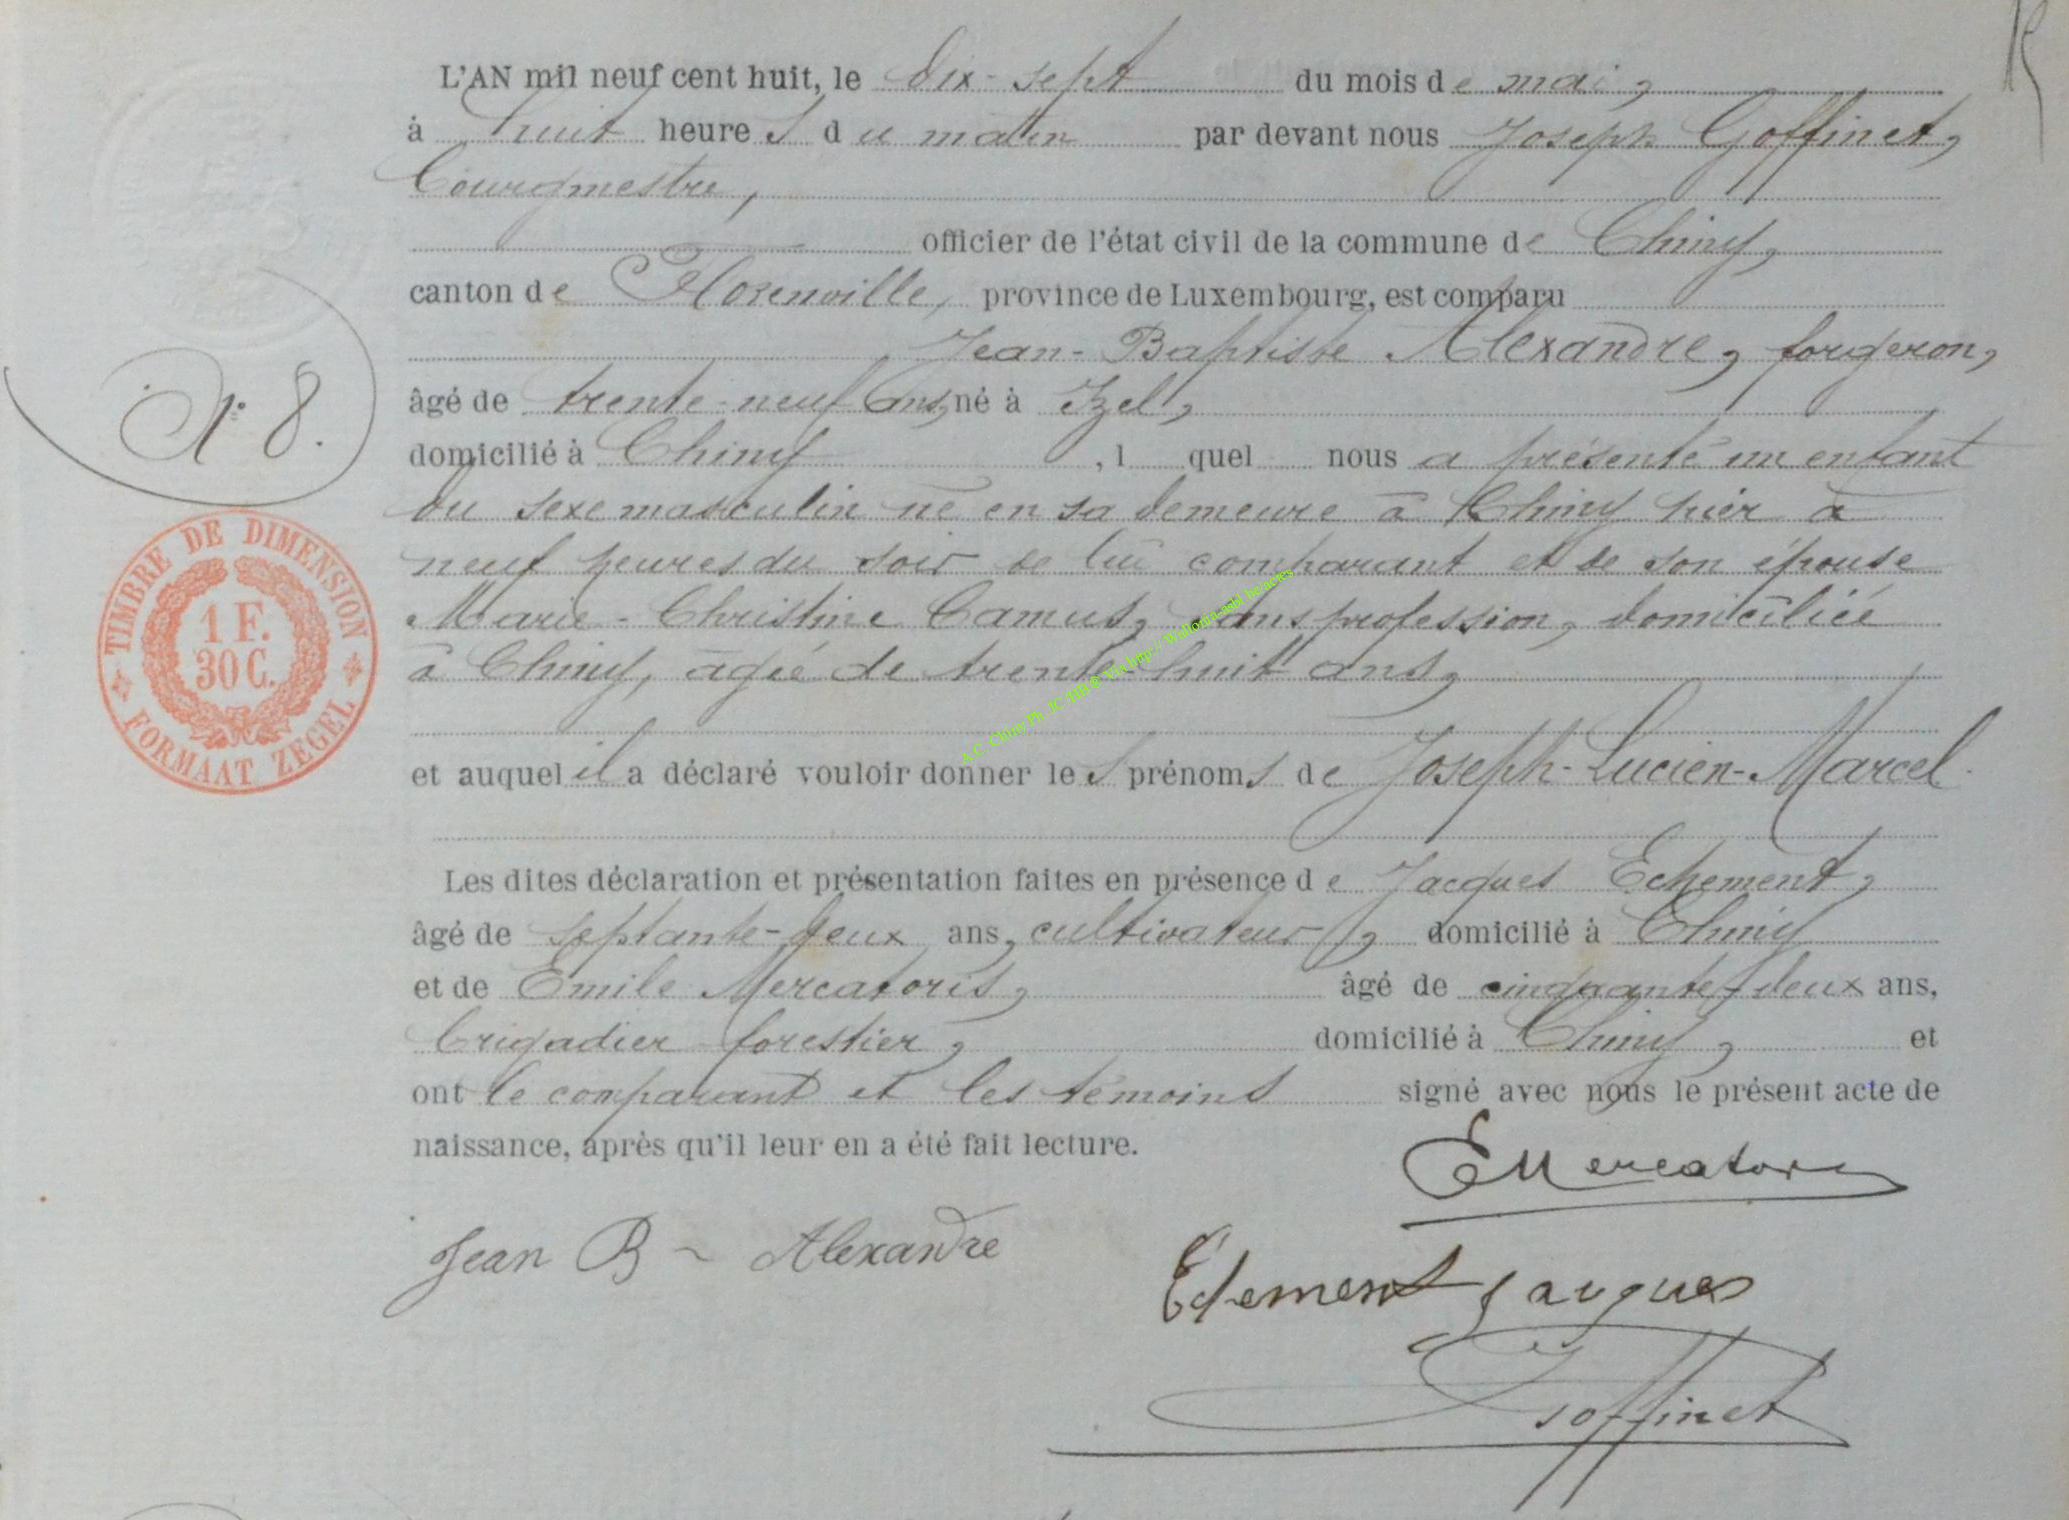 L'AN mil neuf cent huit, le dix-sept du mois de mai,
à huit heures du matin par devant nous Joseph Goffinet,
bourgmestre,
officier de l'état civil de la commune de Chiny,
canton de Florenville, province de Luxembourg, est comparu
Jean-Baptiste Alexandre, forgeron,
âgé de trente-neuf ans, né à Izel,
N° 8.
domicilié à Chiny, l quel nous a présenté un enfant
du sexe masculin né en sa demeure à Chiny hier à
neuf heures du soir de lui comparant et de son épouse
Marie-Christine Camus, sans profession, domiciliée
à Chiny, âgée de trente-huit ans,
TIMBRE DE DIMENSION
1 F.
30 C.
FORMAAT ZEGEL
A.C. Chiny Ph. JC HB © Via http:// Wallonia-asbl be/actes
et auquel il a déclaré vouloir donner les prénoms de Joseph-Lucien-Marcel.
Les dites déclaration et présentation faites en présence de Jacques Echement,
âgé de septante-deux ans, cultivateur, domicilié à Chiny
et de Emile Mercatoris, âgé de cinquante-deux ans,
brigadier forestier, domicilié à Chiny, et
ont le comparant et les témoins signé avec nous le présent acte de
naissance, après qu'il leur en a été fait lecture.
EMercatoris
Jean B ~ Alexandre
Echement Jacques
JGoffinet